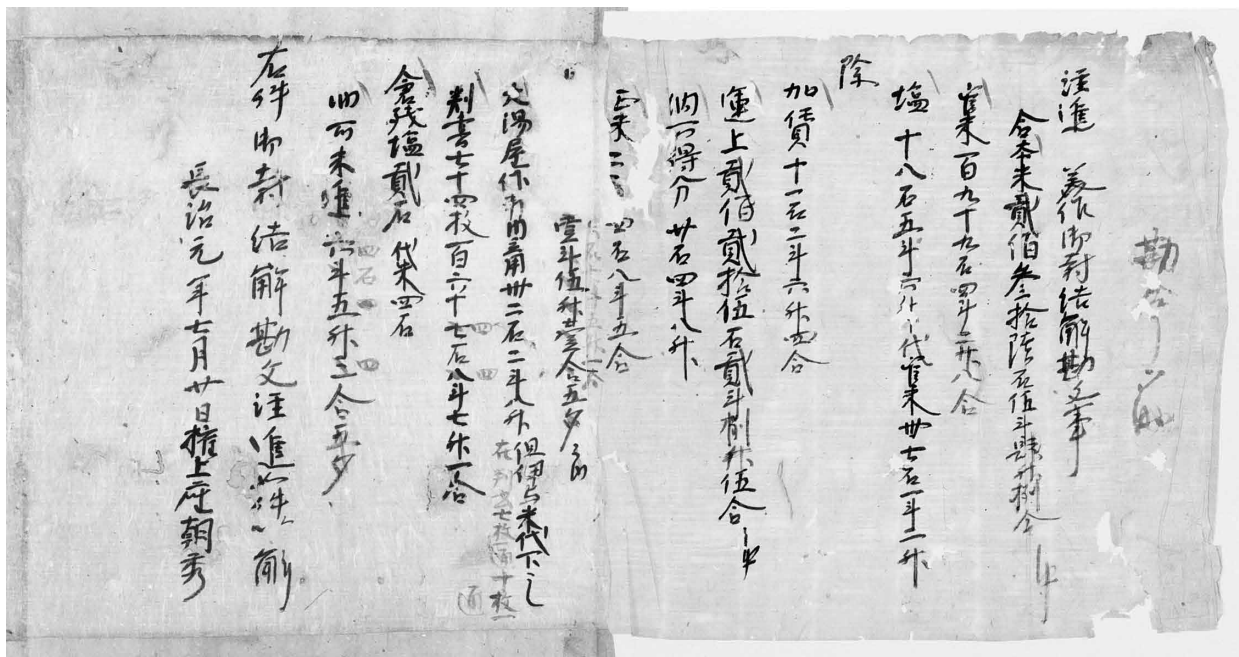 勘合了
注進 美作御封結解勘文事
合本米貳佰参拾陸石伍斗肆升捌合
見米百九十九石四斗二升八合
塩十八石五斗六升 代見米卅七石一斗二升
除
加賃十一石二斗六升四合
運上貳佰貳拾伍石貳斗捌升伍合
納所得分 廿石四斗八升
四石八斗五合
壹斗伍升壹合五夕
大湯屋下 卅二石二斗八升 但伊与米代下之
判書七十四枚百六十七石八斗七升一合
在判書七枚
倉残塩貳石 代米四石
納所未進 六斗五升三合五夕
右件御封結解勘文注進如件 解
長治元年七月廿日権上座朝秀